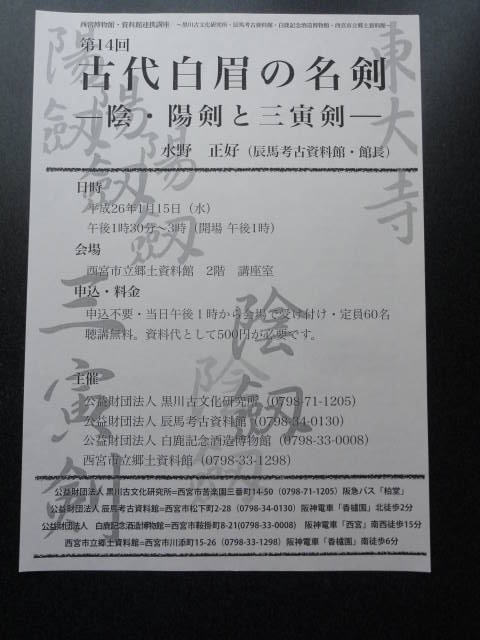 西宮博物館・資料館連携講座　～黒川古文化研究所・辰馬考古資料館・白鹿記念酒造博物館・西宮市立郷土資料館～
第14回
古代白眉の名剣
―陰・陽剣と三寅剣―
水野　正好（辰馬考古資料館・館長）
日時
平成26年1月15日（水）
午後1時30分～3時（開場 午後1時）
会場
西宮市立郷土資料館　2階　講座室
申込・料金
申込不要・当日午後1時から会場で受け付け・定員60名
聴講無料。資料代として500円が必要です。
主催
公益財団法人 黒川古文化研究所（0798-71-1205）
公益財団法人 辰馬考古資料館（0798-34-0130）
公益財団法人 白鹿記念酒造博物館（0798-33-0008）
西宮市立郷土資料館（0798-33-1298）
公益財団法人 黒川古文化研究所=西宮市苦楽園三番町14-50（0798-71-1205）阪急バス「柏堂」
公益財団法人 辰馬考古資料館=西宮市松下町2-28（0798-34-0130）阪神電車「香櫨園」北徒歩2分
公益財団法人　白鹿記念酒造博物館=西宮市鞍掛町8-21(0798-33-0008)　阪神電車「西宮」南西徒歩15分
西宮市立郷土資料館=西宮市川添町15-26（0798-33-1298）阪神電車「香櫨園」南徒歩6分
東大寺
陽劔
陽劔
陽劔
陰劔
陰劔
三寅剣